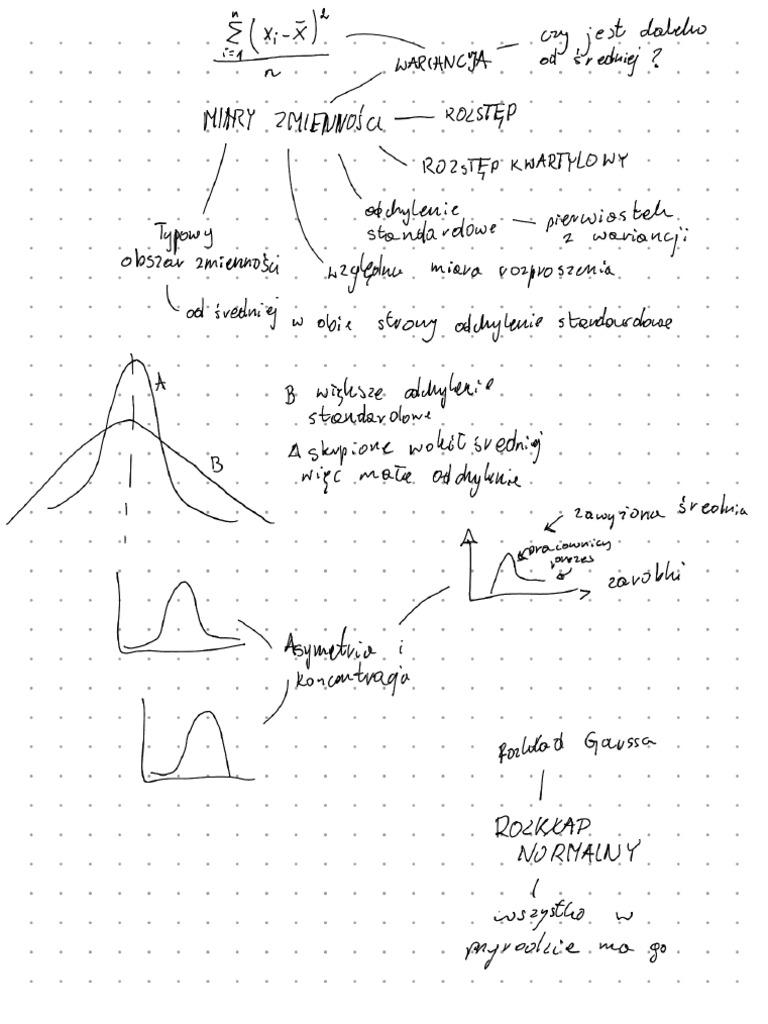 n
Σ (xᵢ - x̄)²
i=1
n
WARIANCJA
czy jest daleko
od średniej?
MIARY ZMIENNOŚCI
ROZSTĘP
ROZSTĘP KWARTYLOWY
odchylenie
standardowe
pierwiastek
z wariancji
Typowy
obszar zmienności
względna miara rozproszenia
od średniej w obie strony odchylenie standardowe
A
B
B większe odchylenie
standardowe
A skupione wokół średniej
więc małe odchylenie
zawyżona średnia
pracownicy
prezes
zarobki
Asymetria i
koncentracja
Rozkład Gaussa
ROZKŁAD
NORMALNY
wszystko w
przyrodzie ma go